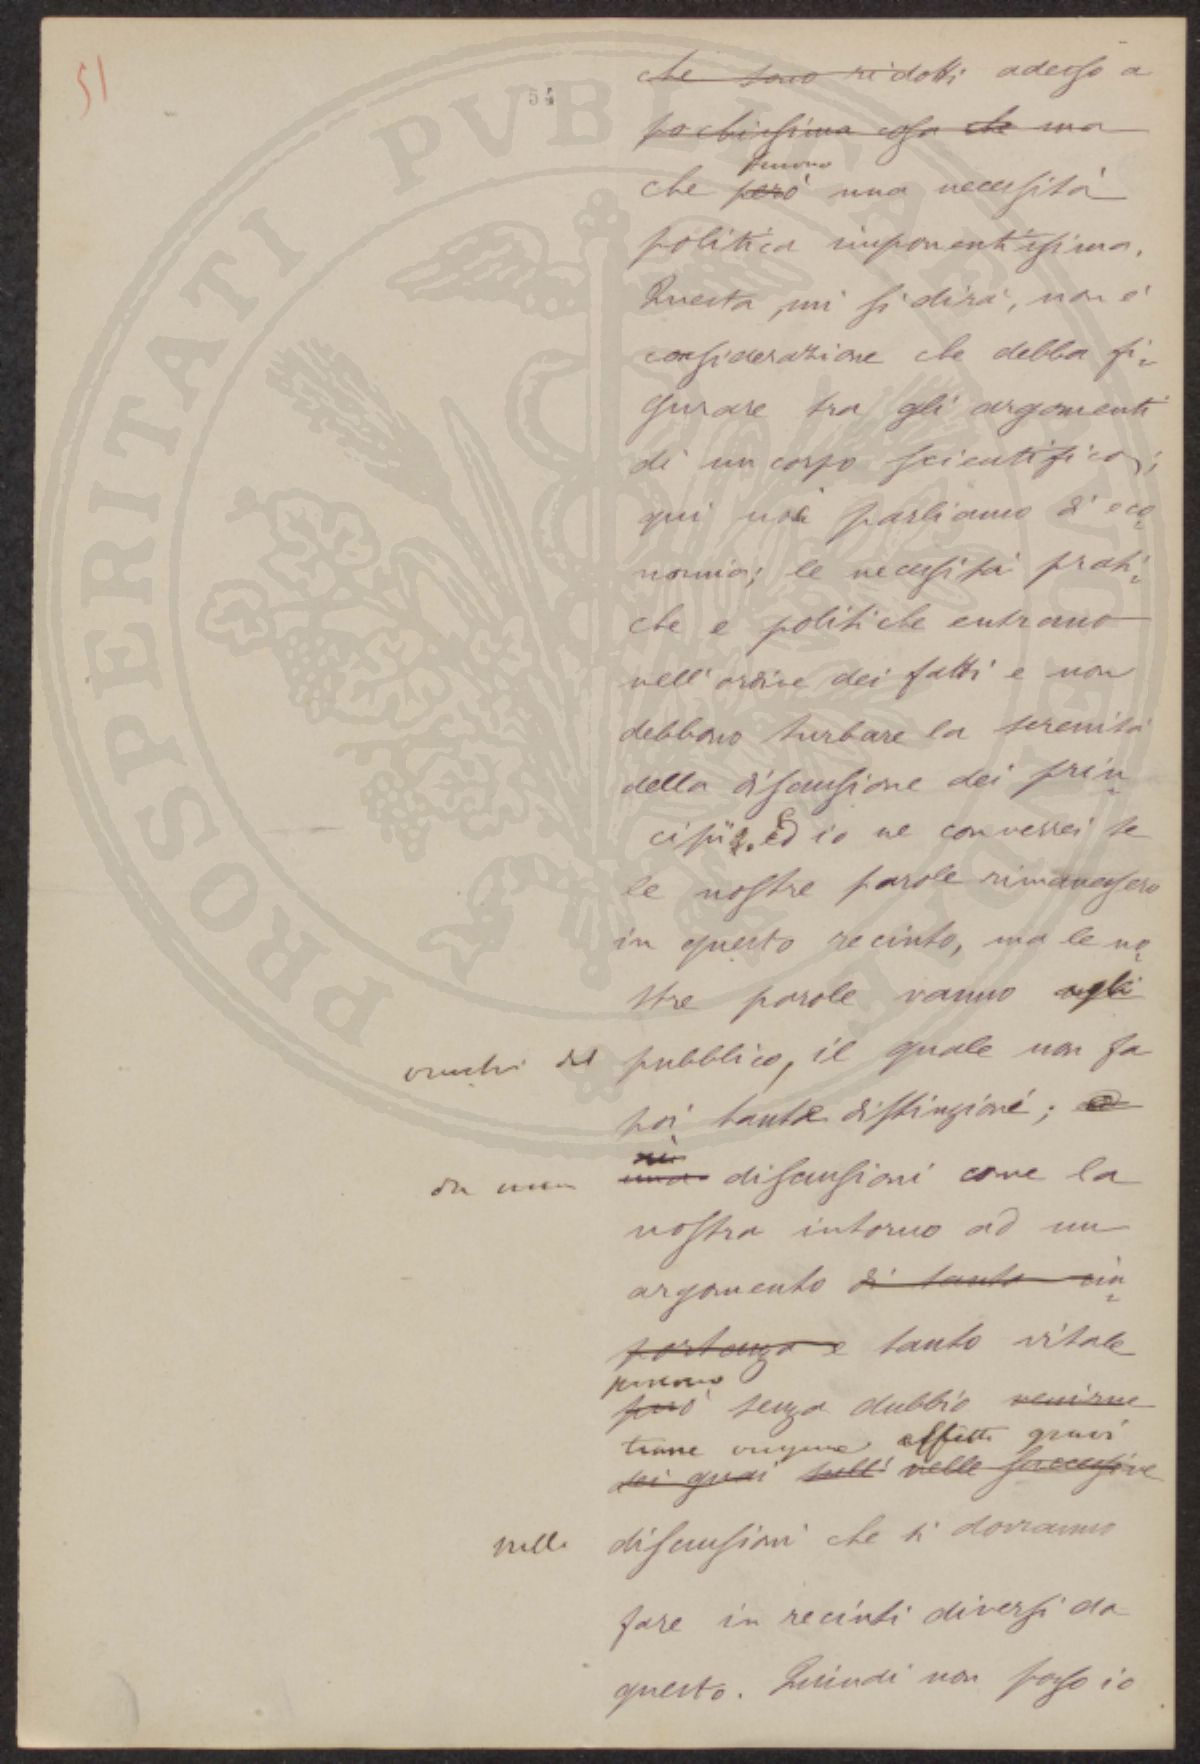 51
54
che sono ridotti adesso a
pochissima cosa che ma
furono
che però una necessità
politica imponentissima.
Questa, mi si dirà, non è
considerazione che debba fi-
gurare tra gli argomenti
di un corpo scientifico;
qui noi parliamo di eco-
nomia; le necessità prati-
che e politiche entrano
nell'ordine dei fatti e non
debbono turbare la serenità
della discussione dei prin-
cipii. Ed io ne converrei se
le nostre parole rimanessero
in questo recinto, ma le no-
stre parole vanno agli
orecchi del pubblico, il quale non fa
poi tante distinzioni; ed
da una discussioni come la
nostra intorno ad un
argomento di tanta im-
portanza e tanto vitale
possono
può senza dubbio venirne
trarre origine effetti gravi
dei guai sulle successive
nelle discussioni che si dovranno
fare in recinti diversi da
questo. Quindi non posso io
PROSPERITATI PVBLICAE